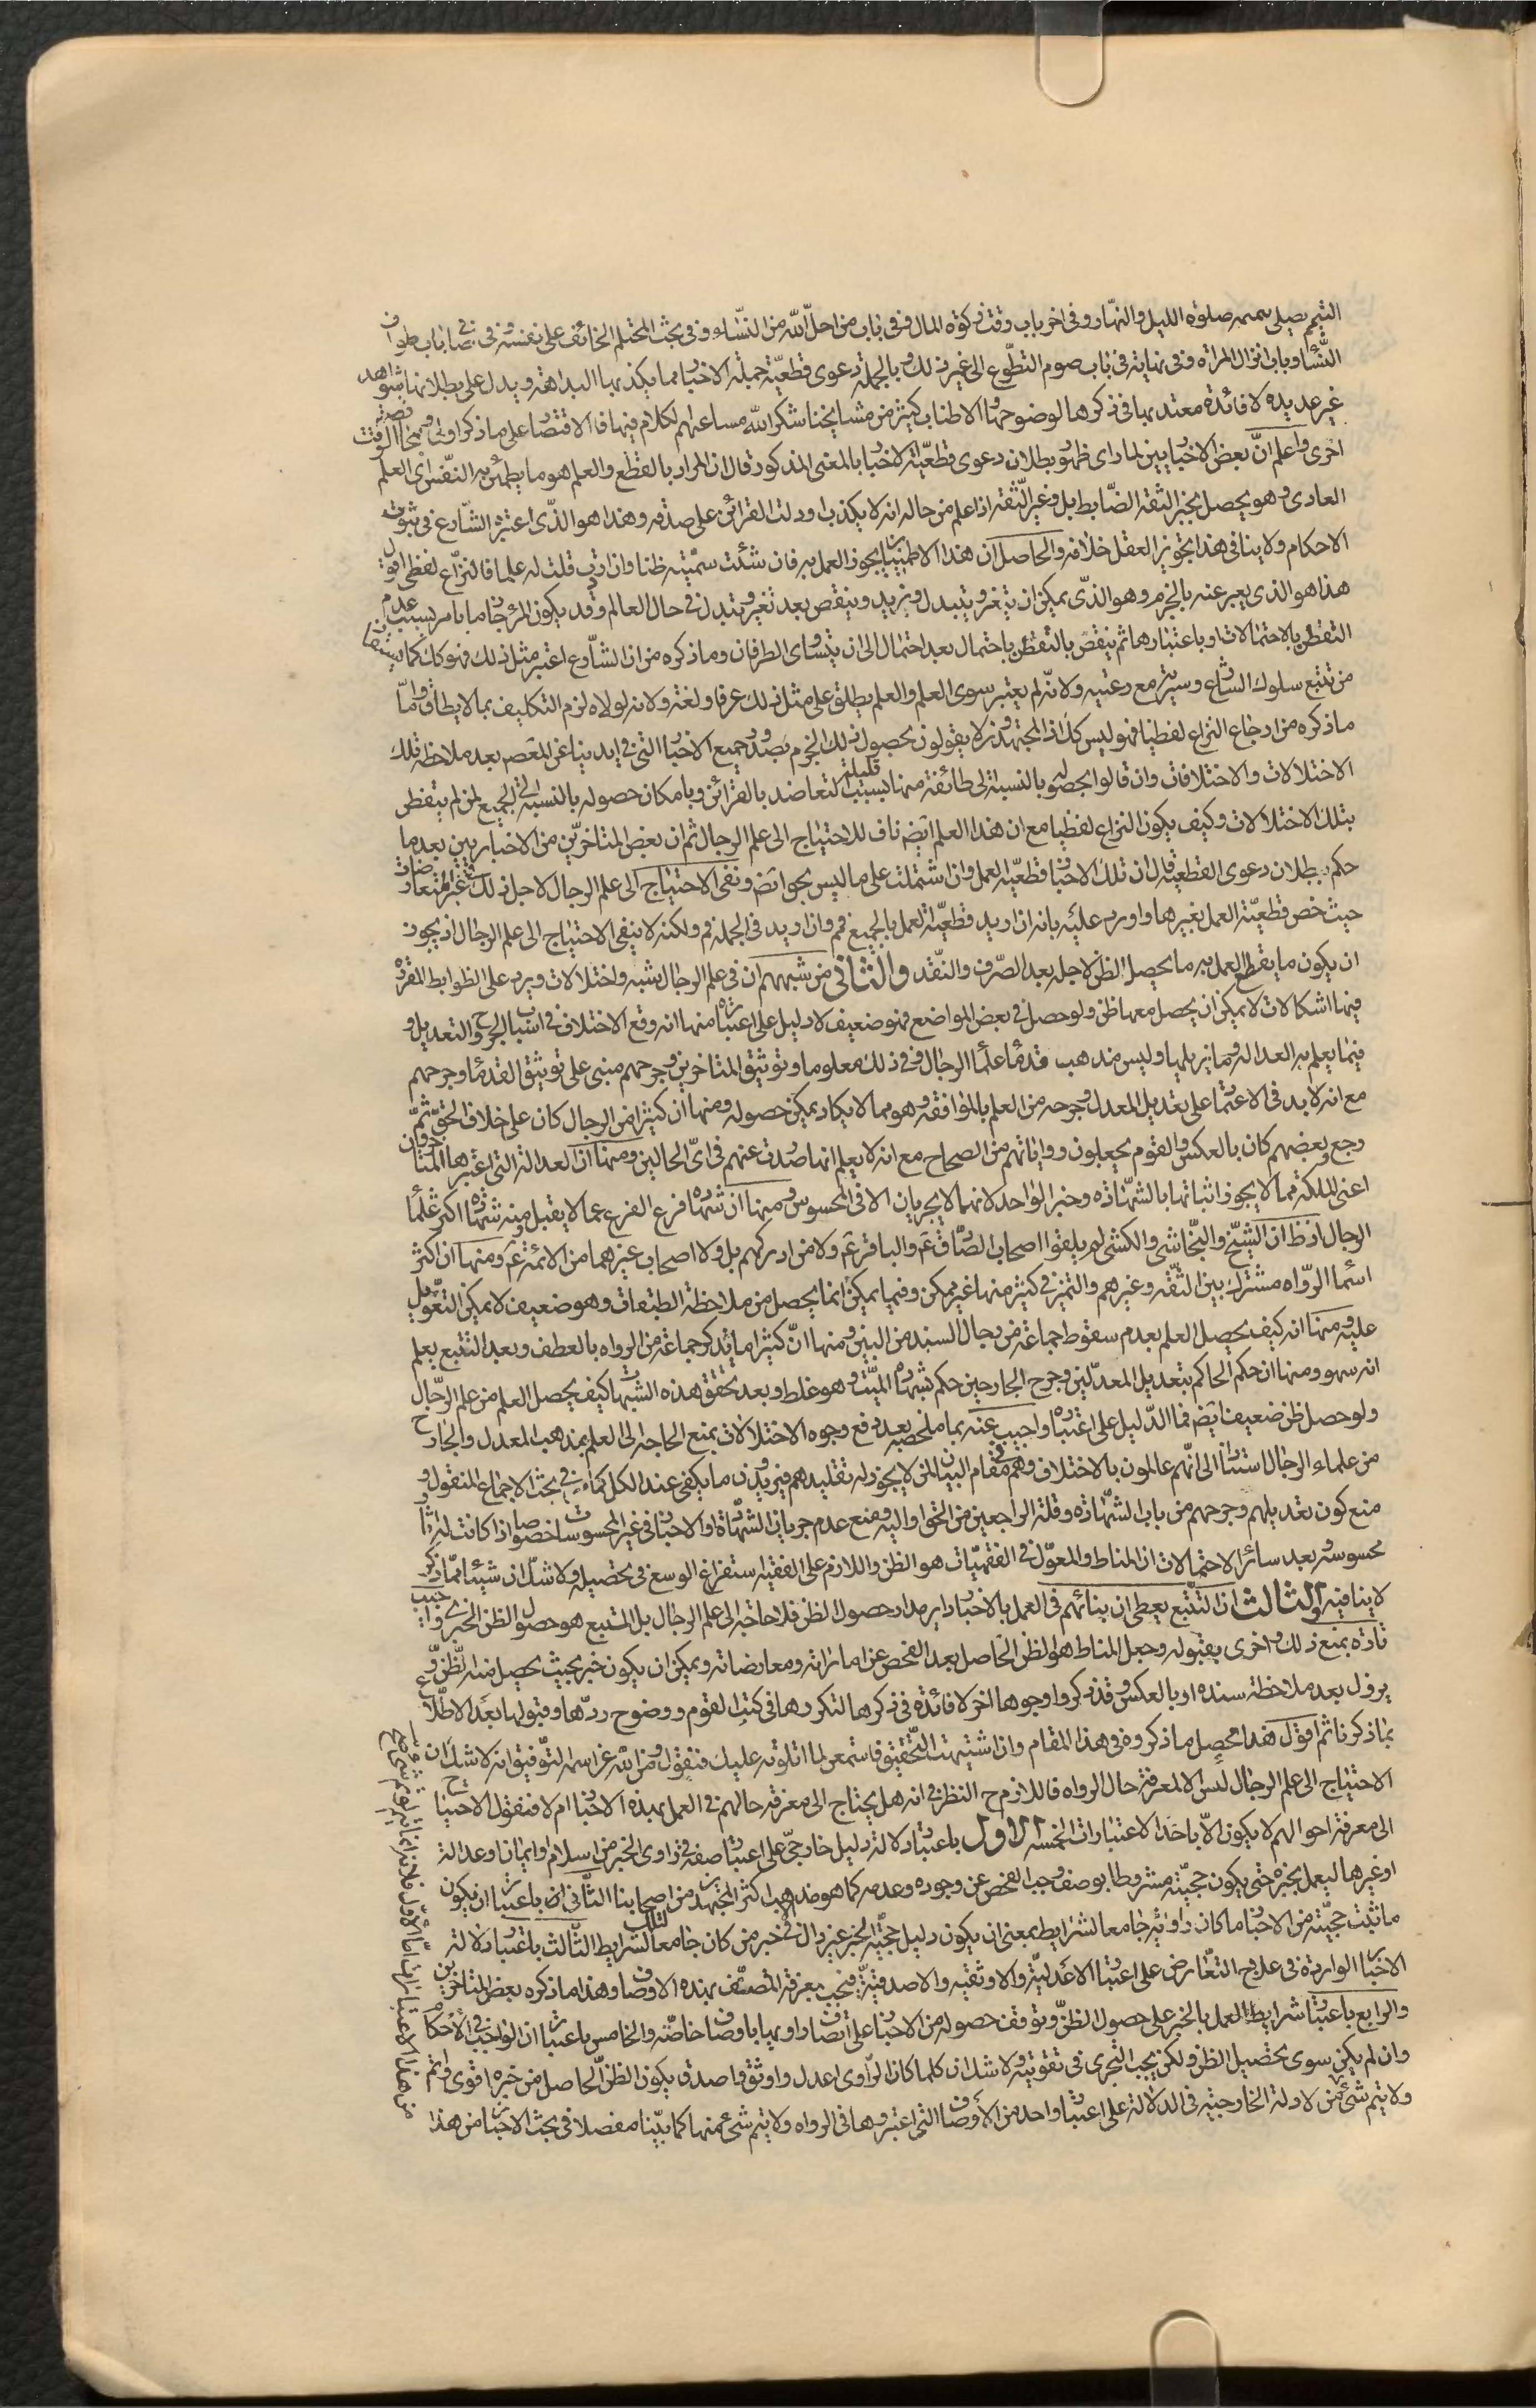 التيمم يصلى بتيممه صلوة الليل والنهار وفى اخر باب وقت زكوة المال وفى باب من احل الله من النساء وفى بحث المحتلم الخائف على نفسه وفى باب طواف
النساء وباب انزال المراة وفى نهايته فى باب صوم التطوع الى غير ذلك وبالجملة دعوى قطعية جملة الاخبار مما يكذبها البداهة ويدل على بطلانها شواهد
غير عديدة لا فائدة معتد بها فى ذكرها لوضوحها والاطناب كثير من مشايخنا شكر الله مساعيهم الكلام فيها فالاقتصار على ما ذكر اولى وصرف الوقت
اخرى واعلم ان بعض الاخباريين لما راى ظهور بطلان دعوى قطعية الاخبار بالمعنى المذكور قال ان المراد بالقطع والعلم هو ما يطمئن به النفس اى العلم
العادى وهو يحصل بخبر الثقة الضابط بل وغير الثقة اذا علم من حاله انه لا يكذب او دلت القرائن على صدقه وهذا هو الذى اعتبره الشارع فى ثبوت
الاحكام ولا ينافى هذا تجويز العقل خلافه والحاصل ان هذا الاطمينان يجوز العمل به فان شئت سميته ظنا وان ابيت قلت له علما فالنزاع لفظى اقول
هذا هو الذى يعبر عنه بالجزم وهو الذى يمكن ان يتغير ويتبدل ويزيد وينقص بعد تغير وتبدل فى حال العالم وقد يكون المرء جازما بامر بسبب عدم
التفطن بالاحتمالات او باعتبارها ثم ينقص بالتفطن باحتمال بعد احتمال الى ان يتساوى الطرفان وما ذكره من ان الشارع اعتبر مثل ذلك فهو كك كما يستفاد
من تتبع سلوك الشارع وسيرته مع رعيته ولانه لم يعتبر سوى العلم والعلم يطلق على مثل ذلك عرفا ولغة ولانه لولاه لزم التكليف بما لا يطاق واما
ما ذكره من ارجاع النزاع لفظيا فهو ليس كك اذ المجتهدون لا يقولون بحصول ذلك الجزم بصدور جميع الاخبار التى فى ايدينا عن المعصوم بعد ملاحظة تلك
الاختلالات والاختلافات وان قالوا بحصوله بالنسبة الى طائفة قليلة منها بسبب التعاضد بالقرائن وبامكان حصوله بالنسبة الى الجميع لمن لم يتفطن
بتلك الاختلالات وكيف يكون النزاع لفظيا مع ان هذا العلم ايضا ناف للاحتياج الى علم الرجال ثم ان بعض المتاخرين من الاخباريين بعد ما
حكم ببطلان دعوى القطعية قال ان تلك الاخبار قطعية العمل وان اشتملت على ما ليس بحجة ايضا ونفى الاحتياج الى علم الرجال لاجل ذلك فى غير المتعارضات
حيث خص قطعية العمل بغيرها واورد عليه بانه ان اريد قطعية العمل بالجميع فم وان اريد فى الجملة فم ولكنه لا ينفى الاحتياج الى علم الرجال اذ يجوز
ان يكون ما يقطع العمل به ما يحصل الظن لاجله بعد الصرف والنقد والثانى من شبههم ان فى علم الرجال شبه واختلالات ويرد على الظوابط المقررة
فيها اشكالات لا يمكن ان يحصل معها ظن ولو حصل فى بعض المواضع فهو ضعيف لا دليل على اعتباره منها انه وقع الاختلاف فى اسباب الجرح والتعديل و
فيما يعلم به العدالة وما يزيلها وليس مذهب قدماء علماء الرجال فى ذلك معلوما وتوثيق المتاخرين وجرحهم مبنى على توثيق القدماء وجرحهم
مع انه لا بد فى الاعتماد على تعديل المعدل وجرحه من العلم بالموافقة وهو مما لا يكاد يمكن حصوله ومنها ان كثيرا من الرجال كان على خلاف الحق ثم
رجع وبعضهم كان بالعكس والقوم يجعلون رواياتهم من الصحاح مع انه لا يعلم انها صدرت عنهم فى اى الحالين ومنها ان العدالة التى اعتبرها المتاخرون
اعنى الملكة مما لا يجوز اثباتها بالشهادة وخبر الواحد لانهما لا يجريان الا فى المحسوس ومنها ان شهادة فرع الفرع مما لا يقبل ومنه شهادة اكثر علماء
الرجال اذ ظ ان الشيخ والنجاشى والكشى لم يلقوا اصحاب الصادق ع والباقر ع ولا من ادركهم بل ولا اصحاب غيرهما من الائمة ع ومنها ان اكثر
اسماء الرواة مشترك بين الثقة وغيرهم والتميز فى كثير منها غير ممكن وفيما يمكن انما يحصل من ملاحظة الطبقات وهو ضعيف لا يمكن التعويل
عليه ومنها انه كيف يحصل العلم بعدم سقوط جماعة من رجال السند من البين ومنها ان كثيرا ما يذكر جماعة من الرواة بالعطف وبعد التتبع يعلم
انه سهو ومنها ان حكم الحاكم بتعديل المعدلين وجرح الجارحين حكم بشهادة الميت وهو غلط وبعد تحقق هذه الشبهات كيف يحصل العلم من علم الرجال
ولو حصل ظن ضعيف ايضا فما الدليل على اعتباره واجيب عنه بما ملخصه بعد دفع وجوه الاختلالات بمنع الحاجة الى العلم بمذهب المعدل والجارح
من علماء الرجال استنادا الى انهم عالمون بالاختلاف وهم فى مقام البيان لمن لا يجوز له تقليدهم فيريدون ما يكفى عند الكل كما فى بحث الاجماع المنقول و
منع كون تعديلهم وجرحهم من باب الشهادة وقلة الراجعين من الحق او اليه ومنع عدم جريان الشهادة او الاخبار فى غير المحسوسات خصوصا اذا كانت له اثار
محسوسة وبعد سائر الاحتمالات ان المناط والمعول فى الفقهيات هو الظن واللازم على الفقيه استفراغ الوسع فى تحصيله ولا شك ان شيئا مما ذكر
لا ينافيه والثالث ان التتبع يعطى ان بنائهم فى العمل بالاخبار داير مدار حصول الظن فلا حاجة الى علم الرجال بل المتبع هو حصول الظن الخبرى واجيب
تارة بمنع ذلك واخرى بقبوله وجعل المناط هو الظن الحاصل بعد الفحص عن اماراته ومعارضاته ويمكن ان يكون خبر بحيث يحصل منه الظن و
يزول بعد ملاحظة سنده او بالعكس وقد ذكروا وجوها اخر لا فائدة فى ذكرها لتكررها فى كتب القوم ووضوح ردها وقبولها بعد الاطلاع
بما ذكرنا ثم اقول هذا محصل ما ذكروه فى هذا المقام وان اشتهيت التحقيق فاستمع لما اتلوته عليك فنقول ومن الله عز اسمه التوفيق انه لا شك ان
الاحتياج الى علم الرجال ليس الا لمعرفة حال الرواة فاللازم ح النظر فى انه هل يحتاج الى معرفة حالهم فى العمل بهذه الاخبار ام لا فنقول الاحتياج
الى معرفة احوالهم لا يكون الا باحد الاعتبارات الخمسة الاول باعتبار دلالة دليل خارجى على اعتبار صفة فى راوى الخبر من اسلام او ايمان او عدالة
او غيرها ليعمل بخبره حتى يكون حجيته مشروطا بوصف وجب الفحص عن وجوده وعدمه كما هو مذهب اكثر المجتهدين من اصحابنا الثانى ان باعتبار ان يكون
ما ثبت حجيته من الاخبار ما كان راويه جامعا لشرايط بمعنى ان يكون دليل حجية الخبر غير دال الا فى خبر من كان جامعا لتلك الشرايط الثالث باعتبار دلالة
الاخبار الواردة فى علاج التعارض على اعتبار الاعدلية والاوثقية والاصدقية فيجب معرفة المتصف بهذه الاوصاف وهذا ما ذكره بعض المتاخرين
والرابع باعتبار شرايط العمل بالخبر على حصول الظن وتوقف حصوله من الاخبار على اتصاف راويها باوصاف خاصة والخامس باعتبار ان الواجب فى الاحكام
وان لم يكن سوى تحصيل الظن ولكن يجب التحرى فى تقويته ولا شك ان كلما كان الراوى اعدل واوثق واصدق يكون الظن الحاصل من خبره اقوى واتم
ولا يتم شئ من الادلة الخارجية فى الدلالة على اعتبار واحد من الاوصاف التى اعتبروها فى الرواة ولا يتم شئ منها كما بينا مفصلا فى بحث الاخبار من هذا